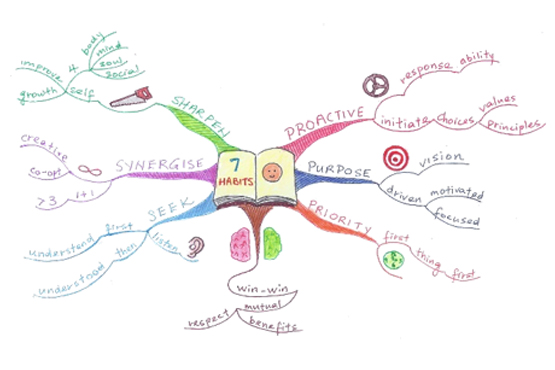 7
HABITS
PROACTIVE
response ability
initiate choices
values
principles
PURPOSE
vision
driven
motivated
focused
PRIORITY
first
thing
first
win-win
mutual
respect
benefits
SEEK
understand first
understood then
listen
SYNERGISE
creative
co-opt
>3 1+1
SHARPEN
improve
growth self
4
body
mind
soul
social